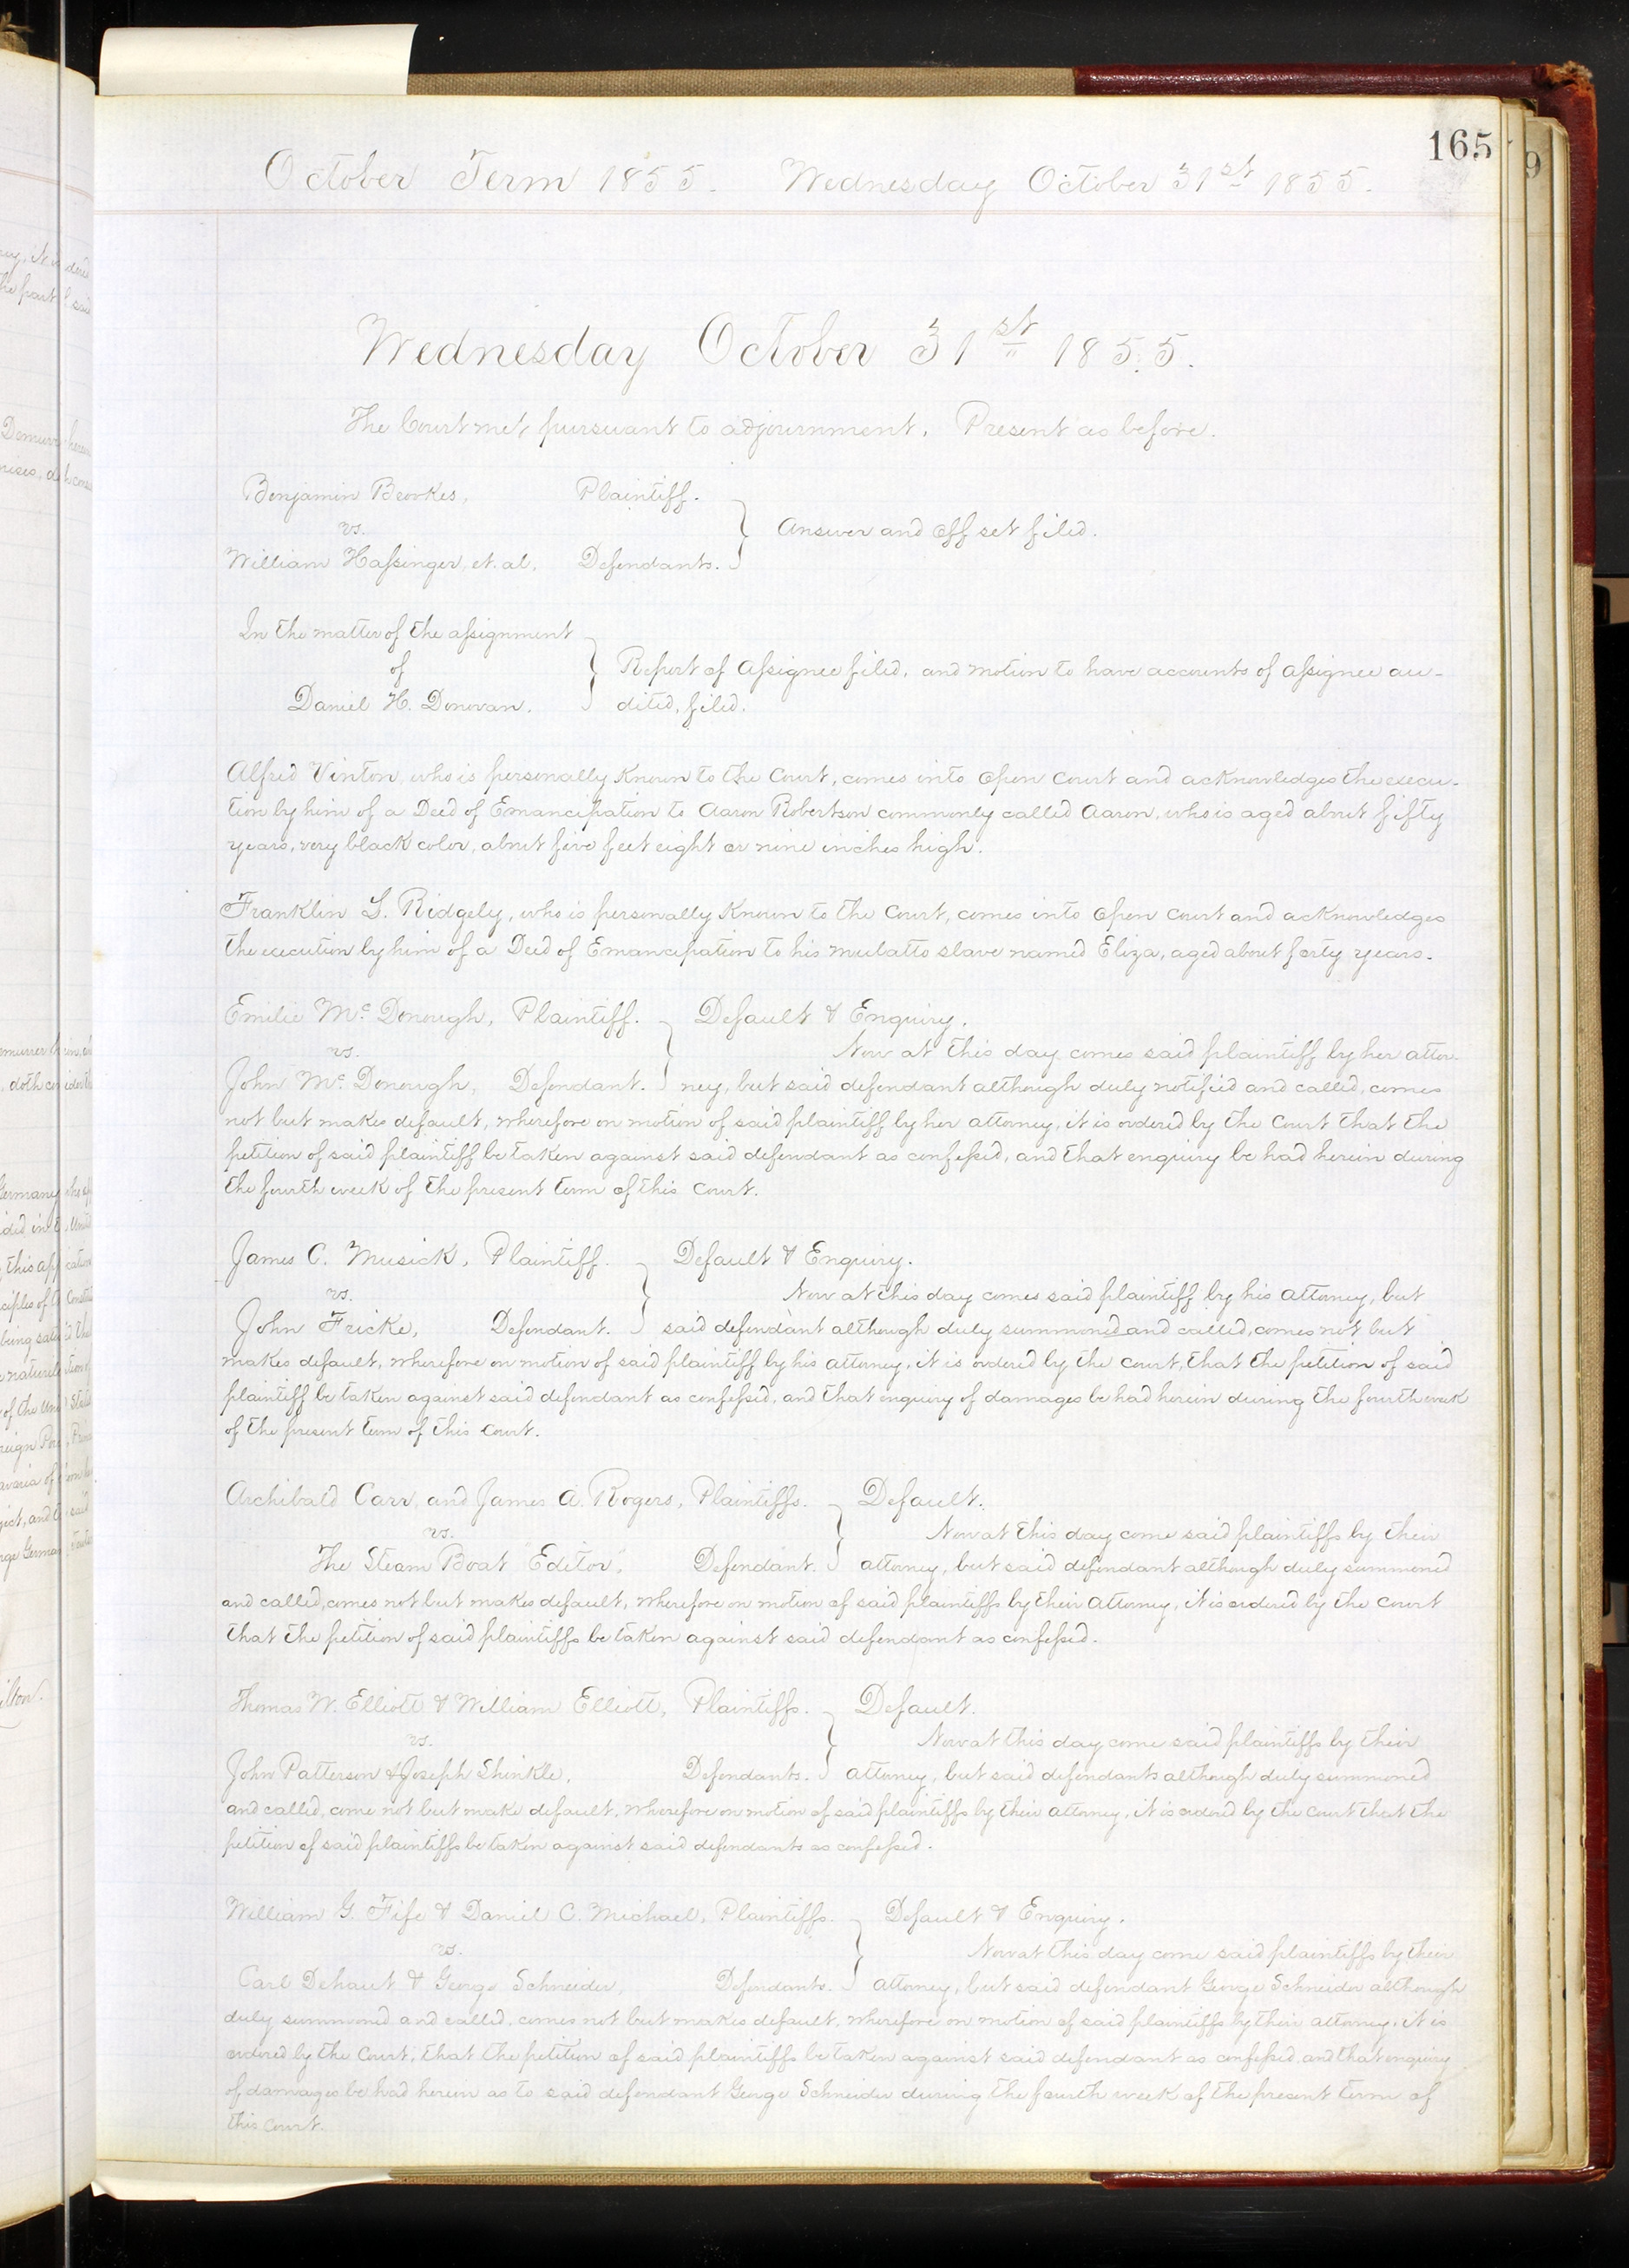 165
October Term 1855. Wednesday October 31st 1855.
Wednesday October 31st 1855.
The Court met pursuant to adjournment. Present as before.
Benjamin Brookes, Plaintiff.
vs.
William Hassinger, et. al. Defendants.
Answer and off set filed.
In the matter of the assignment
of
Daniel H. Donovan.
Report of Assignee filed, and motion to have accounts of assignee au-
dited, filed.
Alfred Vinton, who is personally known to the Court, comes into open court and acknowledges the execu-
tion by him of a Deed of Emancipation to Aaron Robertson commonly called Aaron, who is aged about fifty
years, very black color, about five feet eight or nine inches high.
Franklin L. Ridgely, who is personally known to the Court, comes into open court and acknowledges
the execution by him of a Deed of Emancipation to his mulatto slave named Eliza, aged about forty years.
Emilie McDonough, Plaintiff. Default & Enquiry.
vs. Now at this day comes said plaintiff by her attor-
John McDonough, Defendant. ney, but said defendant although duly notified and called, comes
not but makes default, wherefore on motion of said plaintiff by her attorney, it is ordered by the Court that the
petition of said plaintiff be taken against said defendant as confessed, and that enquiry be had herein during
the fourth week of the present term of this Court.
James C. Musick, Plaintiff. Default & Enquiry.
vs. Now at this day comes said plaintiff by his attorney, but
John Fricke, Defendant. said defendant although duly summoned and called, comes not but
makes default, wherefore on motion of said plaintiff by his attorney, it is ordered by the court, that the petition of said
plaintiff be taken against said defendant as confessed, and that enquiry of damages be had herein during the fourth week
of the present term of this court.
Archibald Carr, and James A. Rogers, Plaintiffs. Default.
vs. Now at this day come said plaintiffs by their
The Steam Boat "Editor", Defendant. attorney, but said defendant although duly summoned
and called, comes not but makes default, wherefore on motion of said plaintiffs by their attorney, it is ordered by the court
that the petition of said plaintiffs be taken against said defendant as confessed.
Thomas W. Elliott & William Elliott, Plaintiffs. Default.
vs. Now at this day come said plaintiffs by their
John Patterson & Joseph Shinkle, Defendants. attorney, but said defendants although duly summoned
and called, come not but make default, wherefore on motion of said plaintiffs by their attorney, it is ordered by the Court that the
petition of said plaintiffs be taken against said defendants as confessed.
William G. Fife & Daniel C. Michael, Plaintiffs. Default & Enquiry.
vs. Now at this day come said plaintiffs by their
Carl Dehaut & George Schneider, Defendants. attorney, but said defendant George Schneider although
duly summoned and called, comes not but makes default, wherefore on motion of said plaintiffs by their attorney, it is
ordered by the Court, that the petition of said plaintiffs be taken against said defendant as confessed, and that enquiry
of damages be had herein as to said defendant George Schneider during the fourth week of the present term of
this court.